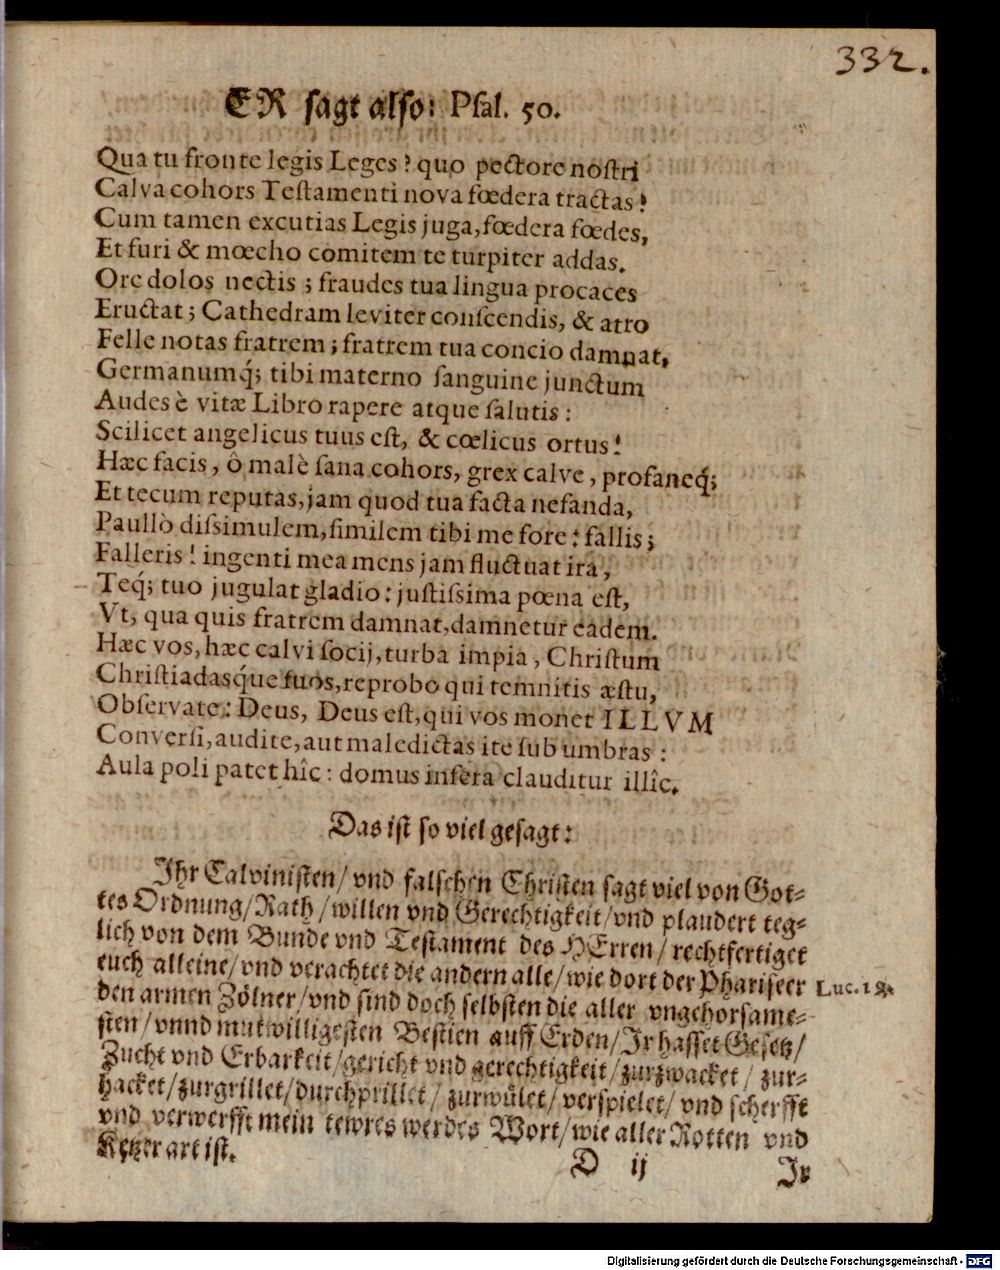 332.
ER sagt also: Psal. 50.
Qua tu fronte legis Leges? quo pectore nostri
Calva cohors Testamenti nova fœdera tractas!
Cum tamen excutias Legis juga, fœdera fœdes,
Et furi & mœcho comitem te turpiter addas.
Ore dolos nectis; fraudes tua lingua procaces
Eructat; Cathedram leviter conscendis, & atro
Felle notas fratrem; fratrem tua concio damnat,
Germanumq́; tibi materno sanguine junctum
Audes è vitæ Libro rapere atque salutis:
Scilicet angelicus tuus est, & cœlicus ortus!
Hæc facis, ô malè sana cohors, grex calve, profaneq́;
Et tecum reputas, jam quod tua facta nefanda,
Paullò dissimulem, similem tibi me fore: fallis;
Falleris! ingenti mea mens jam fluctuat irâ,
Teq́; tuo jugulat gladio: justissima pœna est,
Vt, qua quis fratrem damnat, damnetur eadem.
Hæc vos, hæc calvi socij, turba impia, Christum
Christiadasq́ue suos, reprobo qui temnitis æstu,
Observate: Deus, Deus est, qui vos monet ILLVM
Conversi, audite, aut maledictas ite sub umbras:
Aula poli patet hîc: domus infera clauditur illîc.
Das ist so viel gesagt:
Ihr Calvinisten/ vnd falschen Christen sagt viel von Got-
tes Ordnung/ Rath/ willen vnd Gerechtigkeit/ vnd plaudert teg-
lich von dem Bunde vnd Testament des HErren/ rechtfertiget
euch alleine/ vnd verachtet die andern alle/ wie dort der Phariseer
Luc. 18.
den armen Zölner/ vnd sind doch selbsten die aller vngehorsame-
sten/ vnnd mutwilligesten Bestien auff Erden/ Ir hasset Gesetz/
Zucht vnd Erbarkeit/ gericht vnd gerechtigkeit/ zurzwacket/ zur-
hacket/ zurgrillet/ durchprillet/ zurwůlet/ verspielet/ vnd scherfft
vnd verwerfft mein tewres werdes Wort/ wie aller Rotten vnd
Ketzer art ist.
D ij
Ir
Digitalisierung gefördert durch die Deutsche Forschungsgemeinschaft - DFG